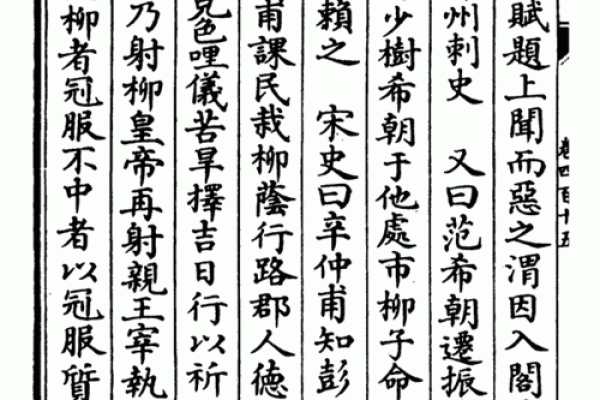 卷四百十五
賦題上聞而惡之渭因入閣
州刺史 又曰范希朝遷振
少樹希朝于他處市柳子命
賴之 宋史曰辛仲甫知彭
甫課民栽柳蔭行路郡人德
色哩儀苦旱擇吉日行以祈
乃射柳皇帝再射親王宰執
柳者冠服不中者以冠服質